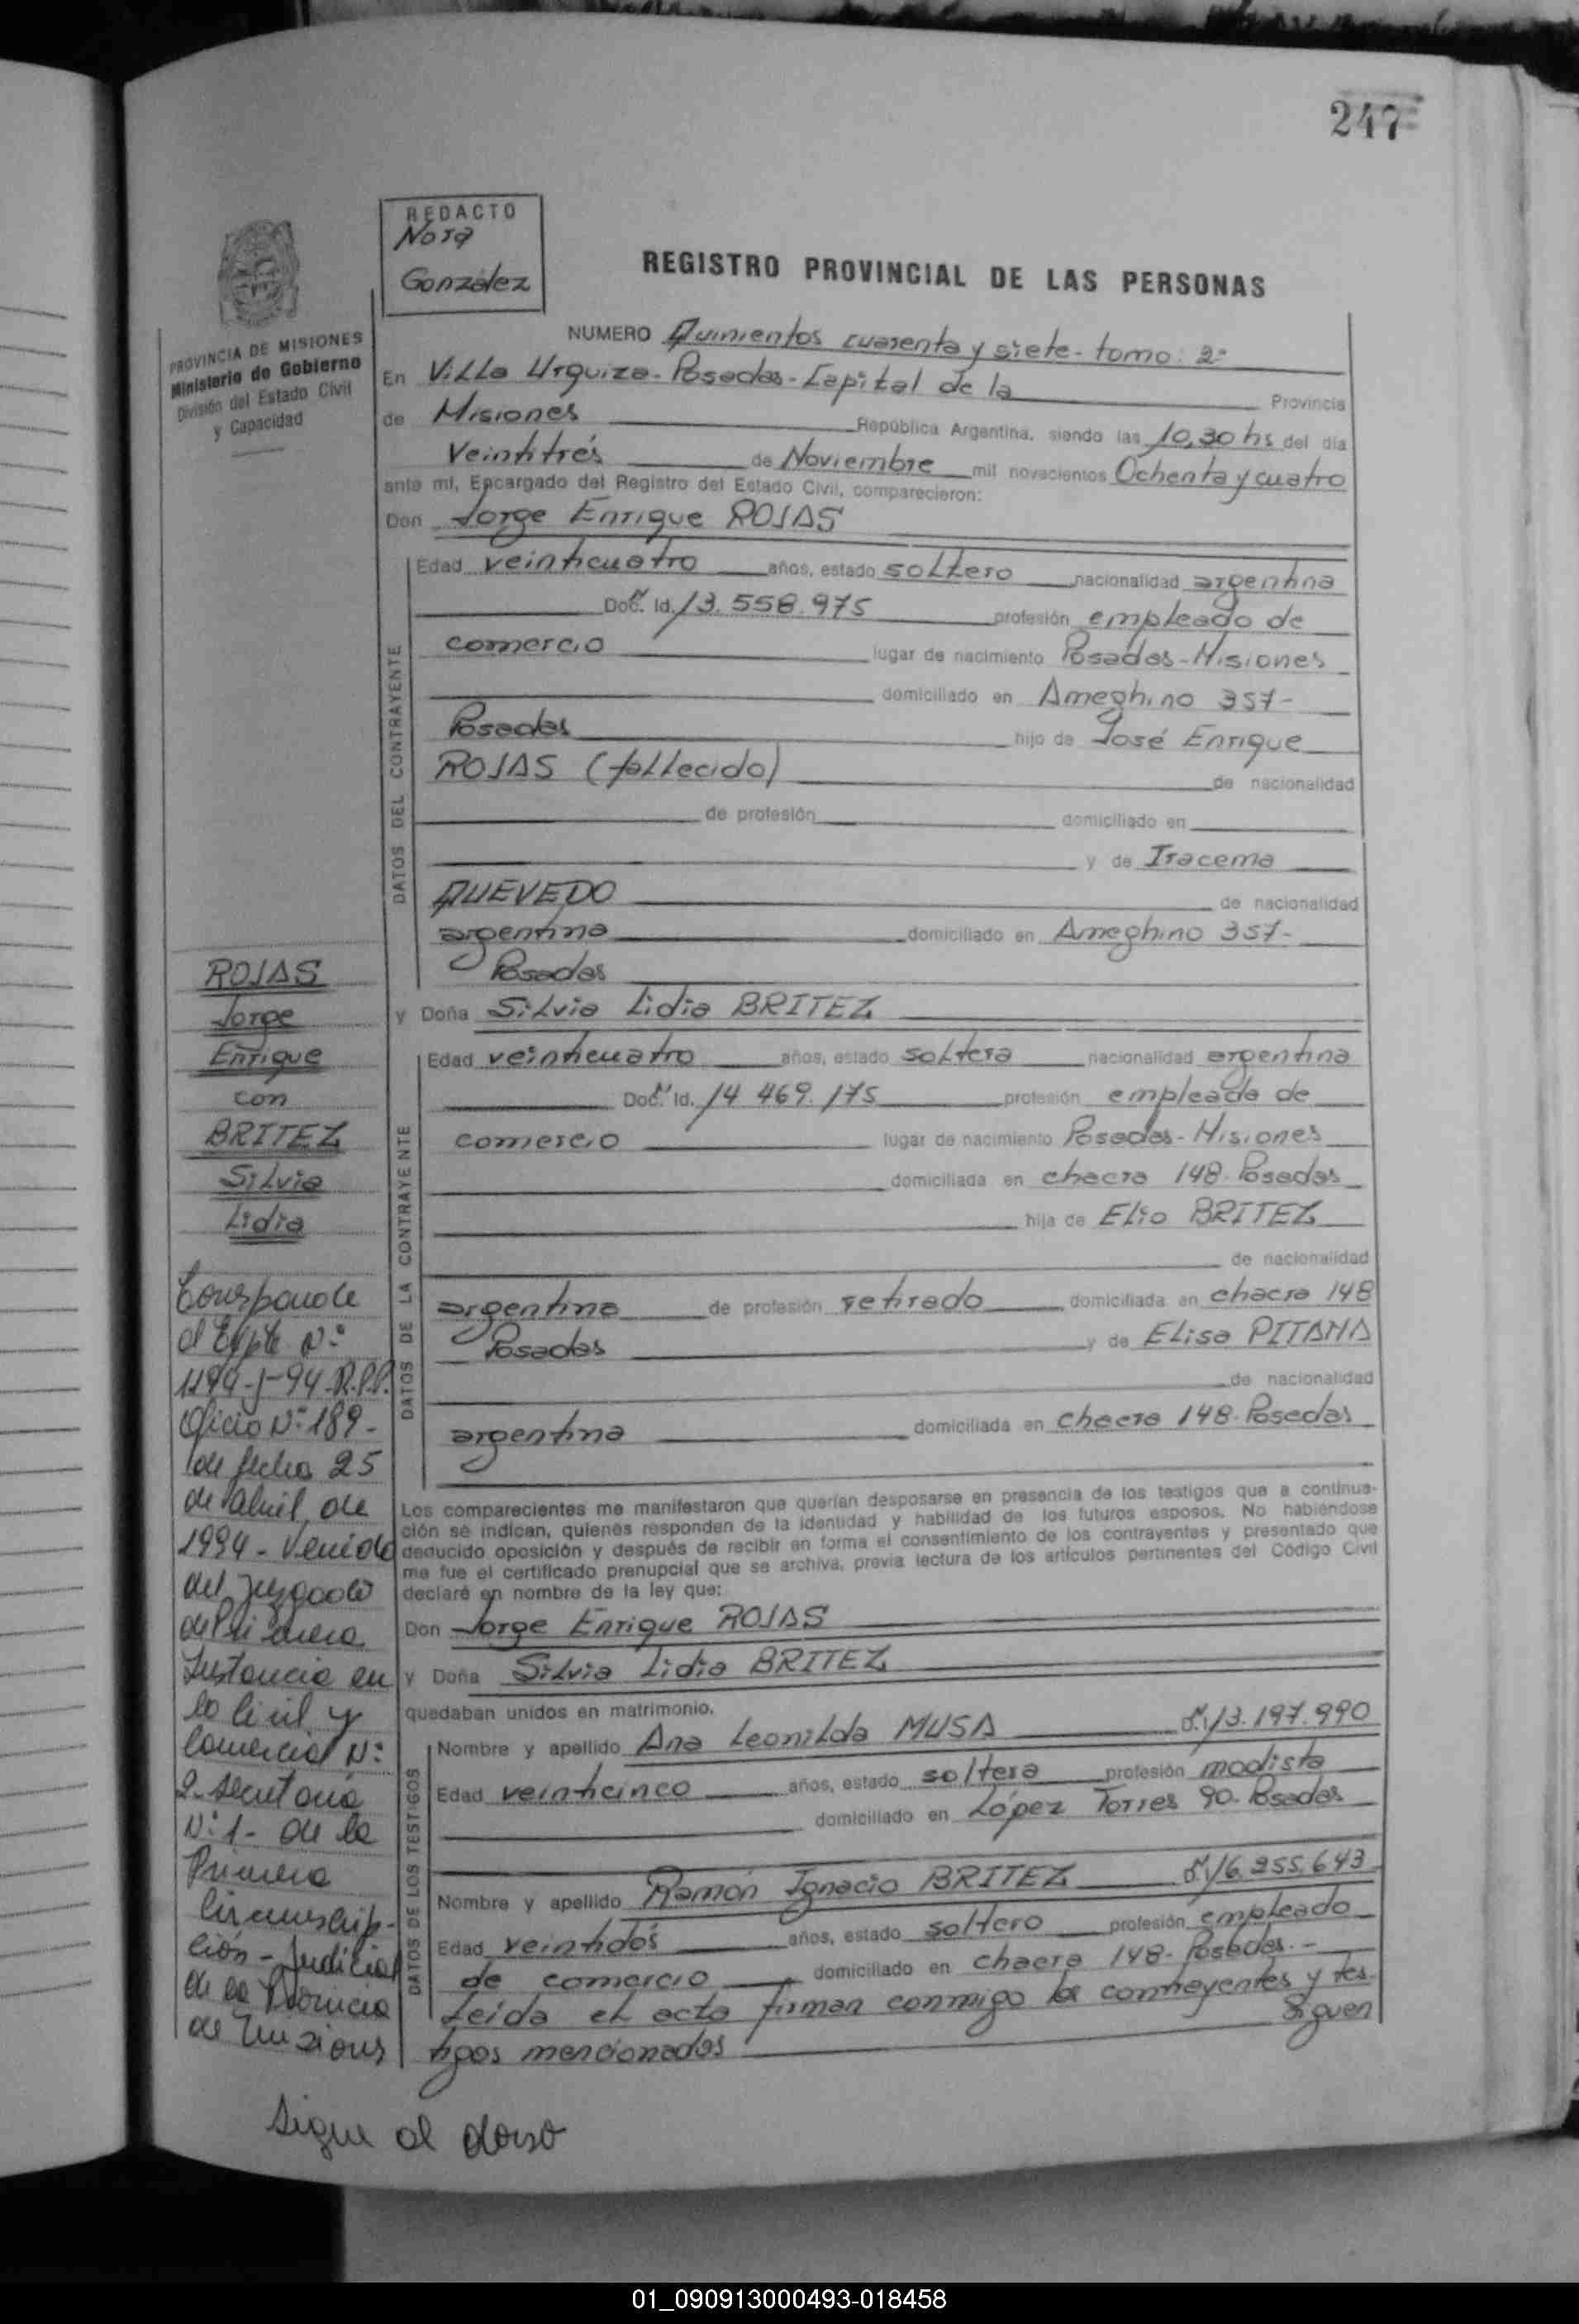 247
REDACTO
Nora
González
REGISTRO PROVINCIAL DE LAS PERSONAS
PROVINCIA DE MISIONES
Ministerio de Gobierno
División del Estado Civil
y Capacidad
NUMERO Quinientos cuarenta y siete - tomo: 2º
En Villa Urquiza - Posadas - Capital de la Provincia
de Misiones República Argentina, siendo las 10,30 hs del día
Veintitrés de Noviembre mil novecientos Ochenta y cuatro
ante mí, Encargado del Registro del Estado Civil, comparecieron:
Don Jorge Enrique ROJAS
DATOS DEL CONTRAYENTE
Edad veinticuatro años, estado soltero nacionalidad argentina
Doc. Id. Nº 13.558.975 profesión empleado de
comercio lugar de nacimiento Posadas - Misiones
domiciliado en Ameghino 357-
Posadas hijo de José Enrique
ROJAS (fallecido) de nacionalidad
de profesión domiciliado en
y de Iracema
QUEVEDO de nacionalidad
argentina domiciliado en Ameghino 357-
Posadas
y Doña Silvia Lidia BRITEZ
DATOS DE LA CONTRAYENTE
Edad veinticuatro años, estado soltera nacionalidad argentina
Doc. Id. Nº 14 469.175 profesión empleada de
comercio lugar de nacimiento Posadas - Misiones
domiciliada en chacra 148 - Posadas
hija de Elio BRITEZ
de nacionalidad
argentina de profesión retirado domiciliada en chacra 148
Posadas y de Elisa PITANA
de nacionalidad
argentina domiciliada en chacra 148 - Posadas
Los comparecientes me manifestaron que querían desposarse en presencia de los testigos que a continua-
ción se indican, quienes responden de la identidad y habilidad de los futuros esposos. No habiéndose
deducido oposición y después de recibir en forma el consentimiento de los contrayentes y presentado que
me fue el certificado prenupcial que se archiva, previa lectura de los artículos pertinentes del Código Civil
declaré en nombre de la ley que:
Don Jorge Enrique ROJAS
y Doña Silvia Lidia BRITEZ
quedaban unidos en matrimonio.
DATOS DE LOS TESTIGOS
Nombre y apellido Ana Leonilda MUSA Nº 13.197.990
Edad veinticinco años, estado soltera profesión modista
domiciliado en López Torres 90 - Posadas
Nombre y apellido Ramón Ignacio BRITEZ Nº 16.255.643
Edad veintidós años, estado soltero profesión empleado
de comercio domiciliado en chacra 148 - Posadas.-
Leída el acta firman conmigo los contrayentes y tes-
tigos mencionados Siguen
ROJAS
Jorge
Enrique
con
BRITEZ
Silvia
Lidia
Corresponde
al Expte Nº
-94-R.P.P.
Oficio Nº 189-
de fecha 25
de abril de
1994 - Venido
del Juzgado
de Primera
Instancia en
lo Civil y
Comercial Nº
2 - Secretaría
Nº 1 - de la
Primera
Circunscrip-
ción - Judicial
de la Provincia
de Misiones
Sigue al dorso
01_090913000493-018458